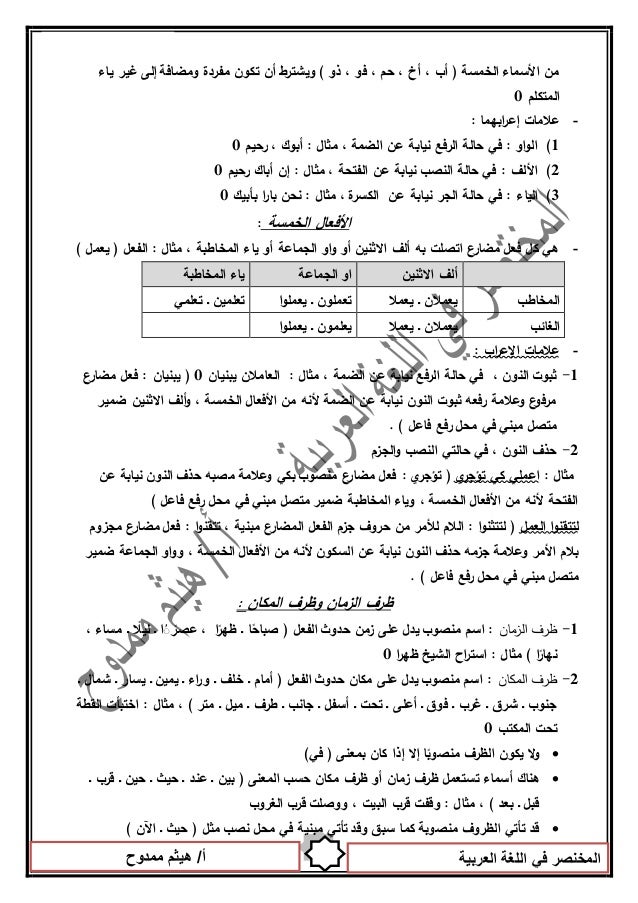 من الأسماء الخمسة ( أب ، أخ ، حم ، فو ، ذو ) ويشترط أن تكون مفردة ومضافة إلى غير ياء
المتكلم 0
- علامات إعرابهما :
1) الواو : في حالة الرفع نيابة عن الضمة ، مثال : أبوك ، رحيم 0
2) الألف : في حالة النصب نيابة عن الفتحة ، مثال : إن أباك رحيم 0
3) الياء : في حالة الجر نيابة عن الكسرة ، مثال : نحن بارا بأبيك 0
الأفعال الخمسة :
- هي كل فعل مضارع اتصلت به ألف الاثنين أو واو الجماعة أو ياء المخاطبة ، مثال : الفعل ( يعمل )
ألف الاثنين او الجماعة ياء المخاطبة
المخاطب يعملان . يعملا تعملون . يعملوا تعلمين . تعلمي
الغائب يعملان . يعملا يعلمون . يعملوا
- علامات الاعراب :
1- ثبوت النون ، في حالة الرفع نيابة عن الضمة ، مثال : العاملان يبنيان 0 ( يبنيان : فعل مضارع
مرفوع وعلامة رفعه ثبوت النون نيابة عن الضمة لأنه من الأفعال الخمسة ، وألف الاثنين ضمير
متصل مبني في محل رفع فاعل ) .
2- حذف النون ، في حالتي النصب والجزم
مثال : اعملي كي تؤجري ( تؤجري : فعل مضارع منصوب بكي وعلامة مصبه حذف النون نيابة عن
الفتحة لأنه من الأفعال الخمسة ، وياء المخاطبة ضمير متصل مبني في محل رفع فاعل )
لتتقنوا العمل ( لتتثنوا : اللام للأمر من حروف جزم الفعل المضارع مبنية ، تتقنوا : فعل مضارع مجزوم
بلام الأمر وعلامة جزمه حذف النون نيابة عن السكون لأنه من الأفعال الخمسة ، وواو الجماعة ضمير
متصل مبني في محل رفع فاعل ) .
ظرف الزمان وظرف المكان :
1- ظرف الزمان : اسم منصوب يدل على زمن حدوث الفعل ( صباحًا . ظهرًا ، عصرًا . ليلًا . مساء ،
نهارًا ) مثال : استراح الشيخ ظهرا 0
2- ظرف المكان : اسم منصوب يدل على مكان حدوث الفعل ( أمام . خلف . وراء . يمين . يسار . شمال .
جنوب . شرق . غرب . فوق . أعلى . تحت . أسفل . جانب . طرف . ميل . متر ) ، مثال : اختبأت القطة
تحت المكتب 0
• ولا يكون الظرف منصوبًا إلا إذا كان بمعنى ( في)
• هناك أسماء تستعمل ظرف زمان أو ظرف مكان حسب المعنى ( بين . عند . حيث . حين . قرب .
قبل . بعد ) ، مثال : وقفت قرب البيت ، ووصلت قرب الغروب
• قد تأتي الظروف منصوبة كما سبق وقد تأتي مبنية في محل نصب مثل ( حيث . الآن )
المختصر في اللغة العربية
أ/ هيثم ممدوح
المخنصر في اللغة العربية
أ/ هيثم ممدوح